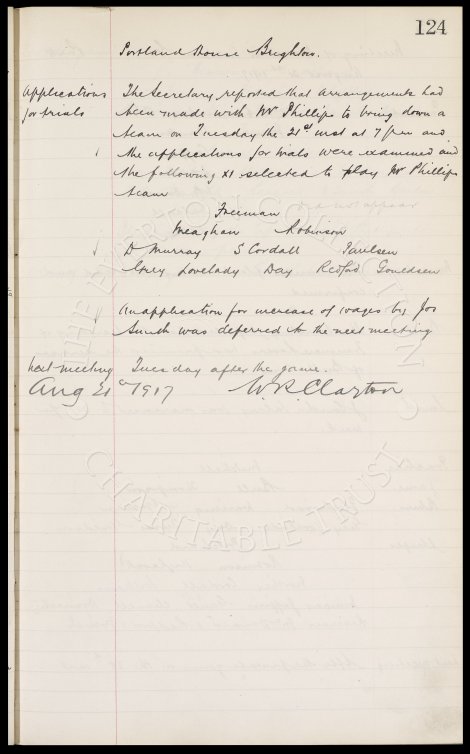 124
Portland House Brighton.
Applications The Secretary reported that arrangements had
for trials been made with Mr Phillips to bring down a
team on Tuesday the 21st inst at 7 p m and
the applications for trials were examined and
the following XI selected to play Mr Phillips
team
Freeman
Meaghan Robinson
D Murray S Cordall Paulsen
Grey Lovelady Day Redfod
An application for increase of wages by Jos
Smith was deferred to the next meeting
Next meeting Tuesday after the game.
Aug 21st 1917 W. R. Clayton
THE EVERTON COLLECTION
CHARITABLE TRUST